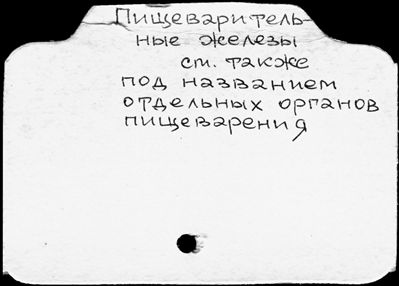 Пищеваритель-
ные железы
см. также
под названием
отдельных органов
пищеварения